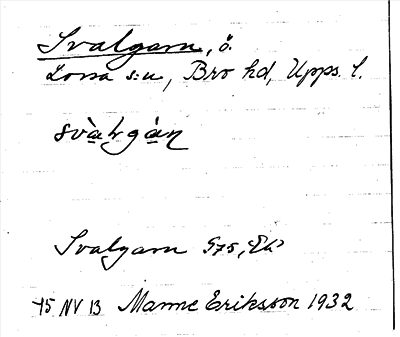 Svalgarn, ö.
Lossa s:n, Bro hd, Upps. l.
Svalgarn
15 NV 13 Manne Eriksson 1932